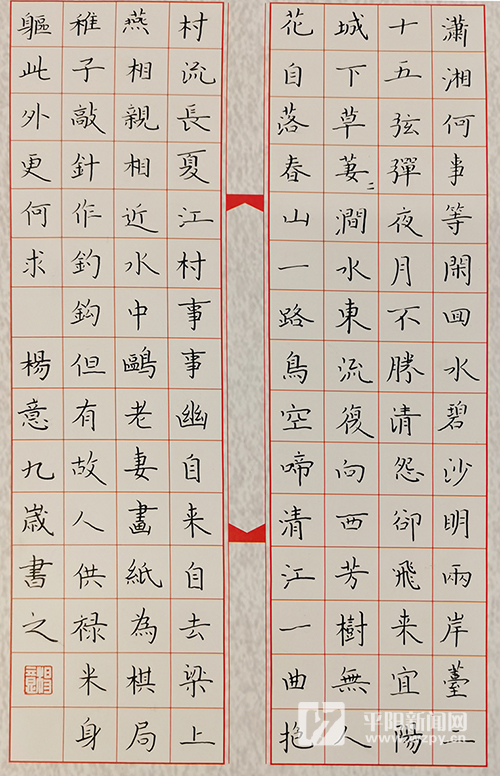 瀟湘何事等閑囬水碧沙明兩岸薹二
十五弦彈夜月不勝清怨卻飛来宜陽
城下草萋〻澗水東流復向西芳樹無人
花自落春山一路鳥空啼清江一曲抱
村流長夏江村事事幽自来自去梁上
燕相親相近水中鷗老妻畫紙為棋局
稚子敲針作釣鈎但有故人供禄米身
軀此外更何求 楊意九歲書之
平阳新闻网